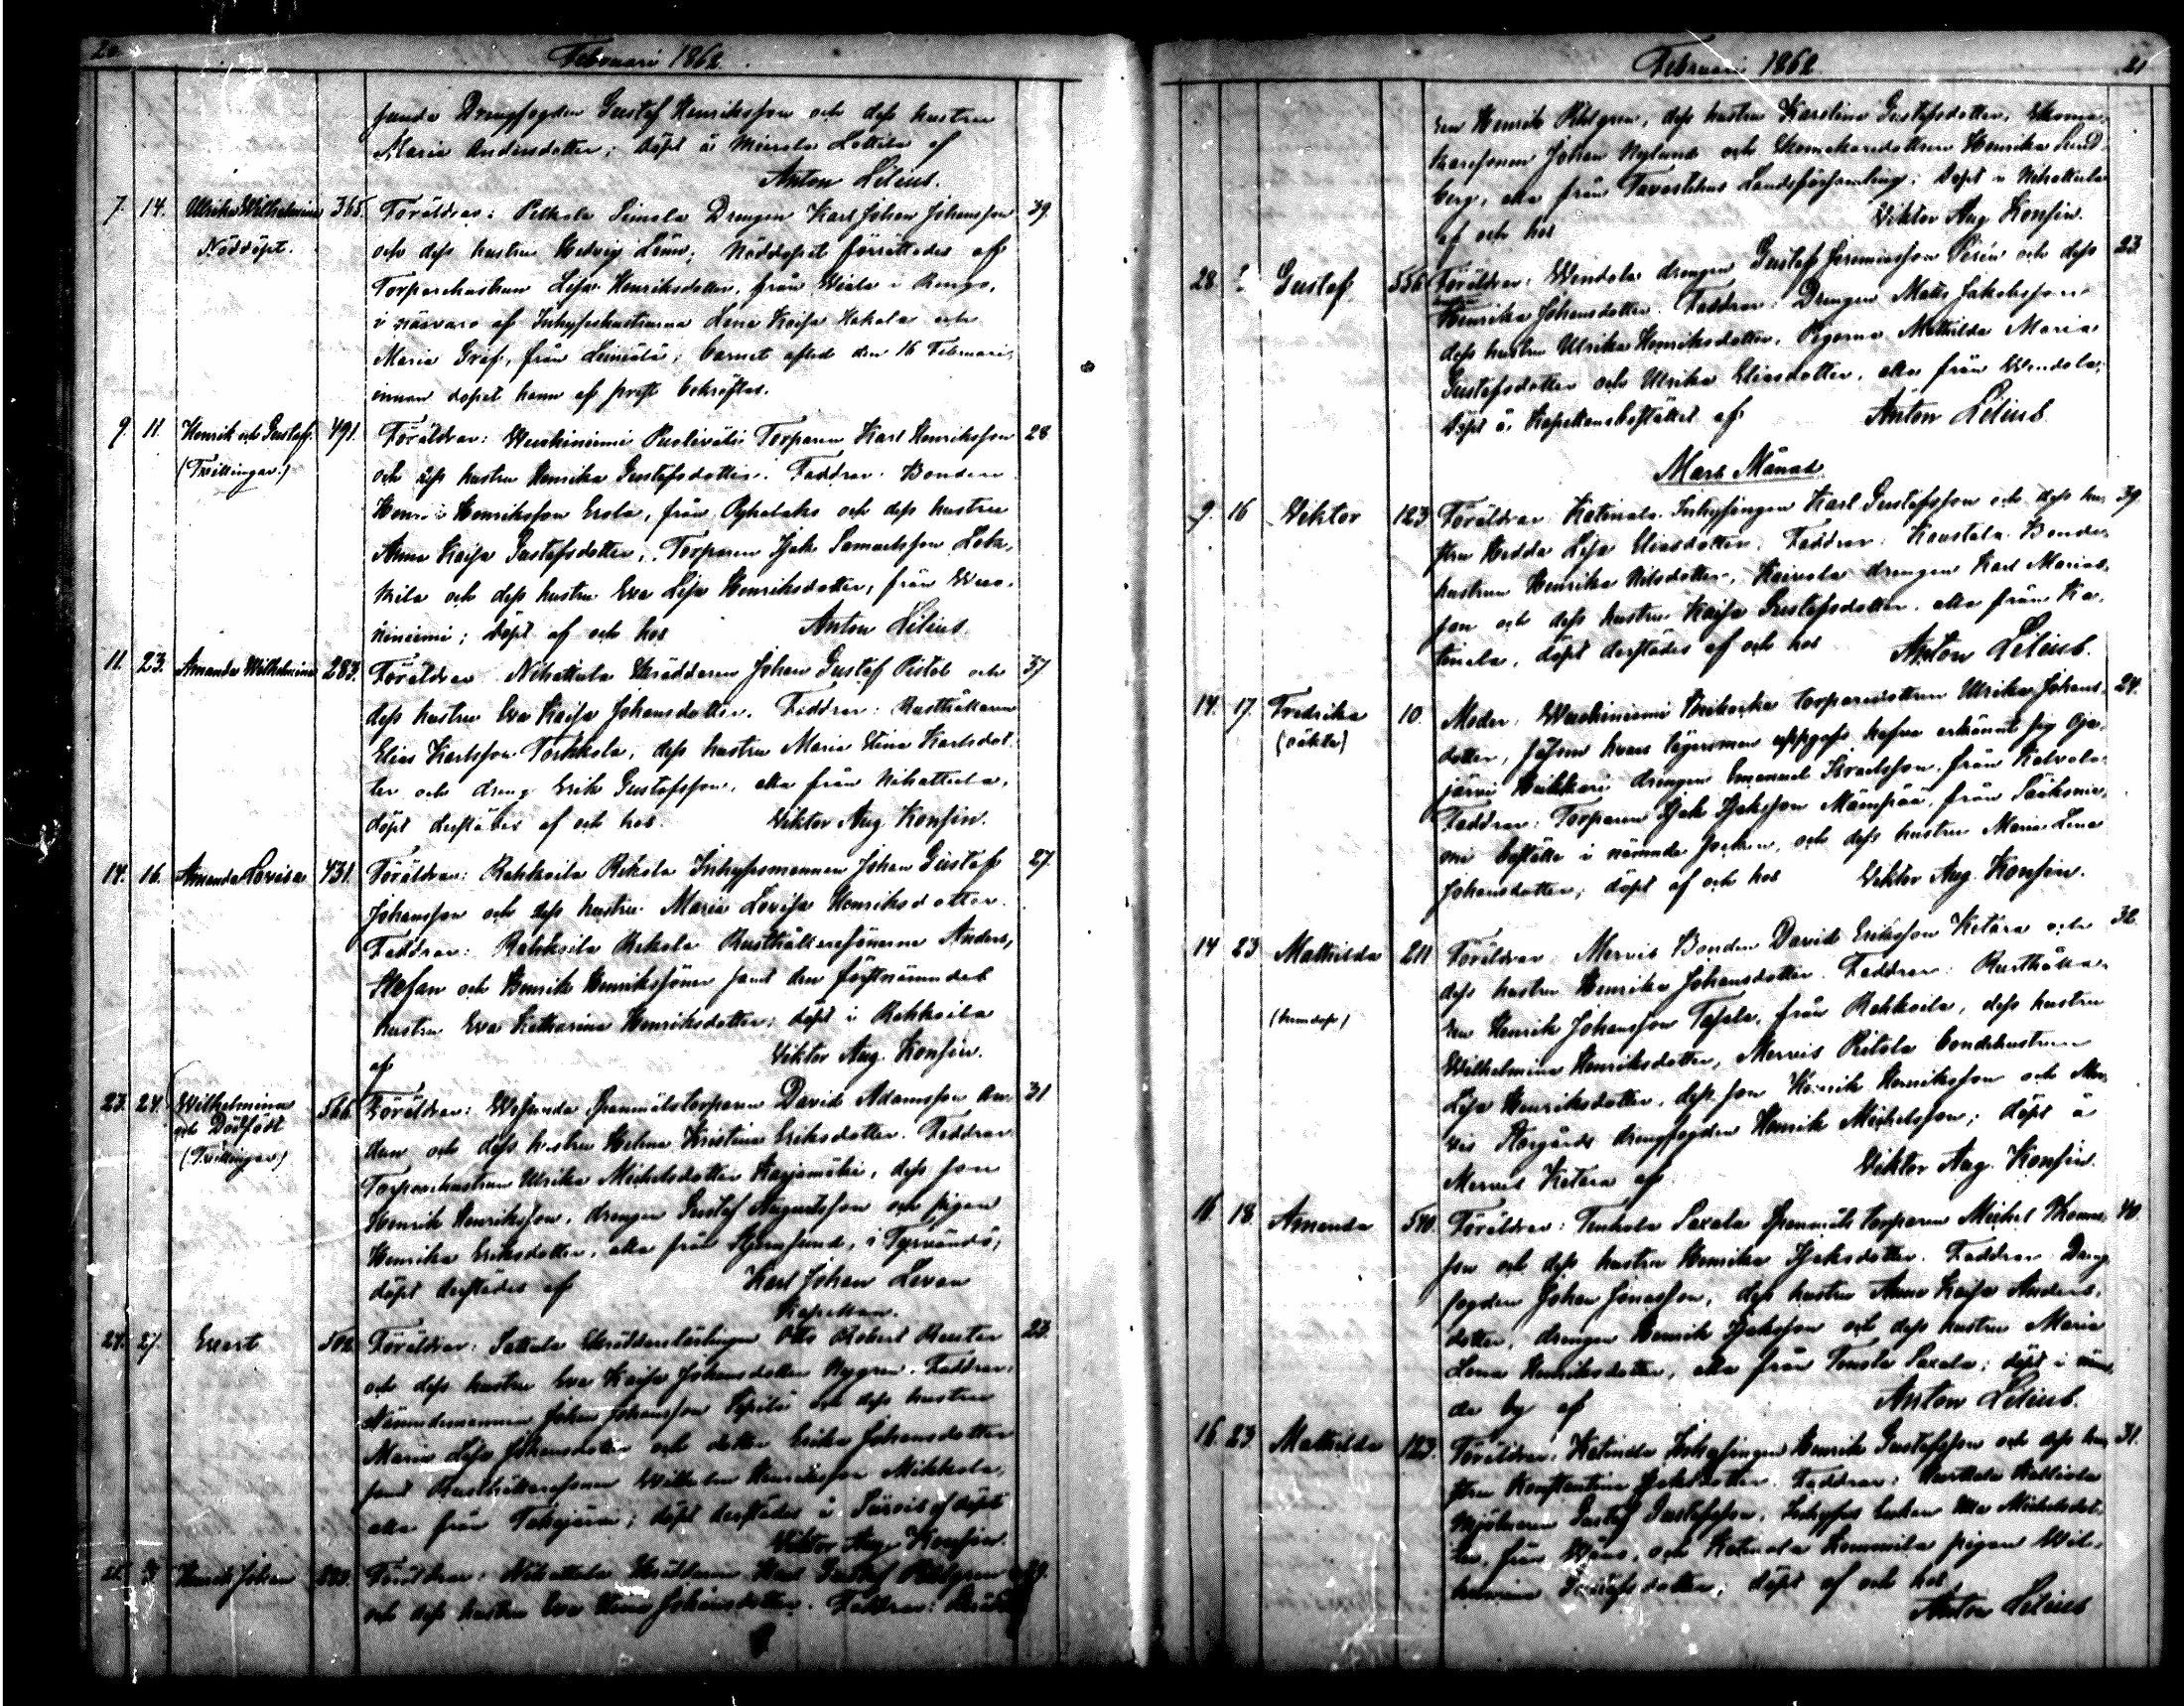 20. Februari 1862.
sunda Drengfogden Gustaf Henriksson och dess hustru
Maria Andersdotter; döpt å Mierola Lottila af
Anton Lilius.
7. 14. Ulrika Wilhelmina 365. Föräldrar: Pelkola Simola Drengen Karl Johan Johansson 39.
Nöddöpt. och dess hustru Hedvig Lönn; Nöddopet förrättades af
Torparehustrun Lisa Henriksdotter, från Wiala i Rengo,
i närvaro af Inhyseshustrurna Lena Kaisa Hakala och
Maria Gref, från Leiniälä; barnet afled den 16 Februari,
innan dopet hann af prest bekräftas.
9. 11. Henrik och Gustaf. 491. Föräldrar: Wuohiniemi Torparen Karl Henriksson 28
(Tvillingar.) och dess hustru Henrika Gustafsdotter. Faddrar: Bonden
Henrik Henriksson Erola, från och dess hustru
Anna Kaisa Gustafsdotter, Torparen Isak Samuelsson
och dess hustru Eva Lisa Henriksdotter, från Wuo-
hiniemi; döpt af och hos Anton Lilius.
11. 23. Amanda Wilhelmina 283. Föräldrar: Nihattula Skräddaren Johan Gustaf Pistol och 37
dess hustru Eva Kaisa Johansdotter. Faddrar: Rusthållaren
Elias Karlsson Torkkola, dess hustru Maria Stina Karlsdot-
ter och dreng Erik Gustafsson, alla från Nihattula,
döpt derstädes af och hos. Viktor Aug. Konsin.
14. 16. Amanda Lovisa 431. Föräldrar: Rahkoila Rekola Inhysesmannen Johan Gustaf 27.
Johansson och dess hustru Maria Lovisa Henriksdotter.
Faddrar: Rahkoila Rekola Rusthållaresönerna Anders,
Stefan och Henrik Henrikssöner samt den förstnämndes
hustru Eva Katharina Henriksdotter; döpt i Rahkoila
af Viktor Aug. Konsin.
23. 24. Wilhelmina 566. Föräldrar: Wesunda Spannmålstorparen David Adamsson 31
och Dödfödt och dess hustru Helena Kristina Eriksdotter. Faddrar:
(Tvillingar) Torparehustrun Ulrika Michelsdotter Harjumäki, dess son
Henrik Henriksson, drengen Gustaf Augustsson och pigan
Henrika Eriksdotter, alla från i Tyrväntö,
döpt derstädes af Karl Johan Levan
Kapellan.
24. 27. Evert 502. Föräldrar: Sattula Skräddarelärlingen Otto Robert Reuter 23.
och dess hustru Eva Kaisa Johansdotter Nygren. Faddrar:
Nämndemannen Johan Johansson Seppälä och dess hustru
Maria Lisa Johansdotter och dotter Erika Johansdotter
samt Rusthållaresonen Wilhelm Henriksson Mikkola,
alla från Takajärvi; döpt derstädes
Viktor Aug. Konsin.
Henrik Johan Föräldrar: Nihattula Karl Gustaf Öhlgren
och dess hustru Eva Stina Johansdotter. Faddrar:
Februari 1862. 21
ren Henrik Öhlgren, dess hustru Karolina Gustafsdotter, Skoma-
karesonen Johan Nylund och Skomakaredottren Henrika Lund-
berg, alla från Tavastehus Landsförsamling; Döpt i Nihattula
af och hos Viktor Aug Konsin.
28. Gustaf. 556. Föräldrar: Wendola drengen Gustaf Jeremiasson och dess 23.
Henrika Johansdotter. Faddrar: Drengen Matts Jakobsson
dess hustru Ulrika Henriksdotter, Pigorna Mathilda Maria
Gustafsdotter och Ulrika Eliasdotter, alla från Wendola,
Döpt å Kapellansbostället af Anton Lilius
Mars Månad.
9. 16 Viktor 123 Föräldrar: Katinala Inhysingen Karl Gustafsson och dess hu- 39.
stru Hedda Lisa Eliasdotter. Faddrar: Konstala Bonde-
hustrun Henrika Nilsdotter, Kaivola drengen Karl
son och dess hustru Kaisa Gustafsdotter, alla från Ka-
tinala, döpt derstädes af och hos Anton Lilius.
14. 17. Fredrika 10. Moder: Wuohiniemi torparedottren Ulrika Johans- 24.
(oäkta) dotter, såsom hvars lägersman uppgafs hafva erkännt sig Oja-
järvi drengen Emanuel Israelsson från Kalvola.
Faddrar: Torparen Isak Isaksson från Sääksnie-
mi boställe i nämnde socken, och dess hustru Maria Lena
Johansdotter; döpt af och hos Viktor Aug. Konsin.
14 23 Mathilda 211 Föräldrar: Mervis Bonden David Eriksson Ketara och 32
dess hustru Henrika Johansdotter. Faddrar: Rusthålla-
ren Henrik Johansson från Rahkoila, dess hustru
Wilhelmina Henriksdotter, Mervis bondehustrun
Lisa Henriksdotter, dess son Henrik Henriksson och Mer-
vis Storgårds drengfogden Henrik Michelsson; döpt å
Mervis Ketara af Viktor Aug. Konsin.
16. 18. Amanda 540. Föräldrar: Tenhola Saxala Spannmåls torparen Michel Thomas- 40.
son och dess hustru Henrika Isaksdotter. Faddrar: Dreng-
fogden Johan Jonasson, dess hustru Anna Kaisa Anders-
dotter, drengen Henrik Isaksson och dess hustru Maria
Lena Henriksdotter, alla från Saxala; döpt i nämn-
da by af Anton Lilius.
16. 23. Mathilda 123. Föräldrar: Katinala Inhysingen Henrik Gustafsson och dess hu- 31.
stru Konstantina Faddrar:
Mjölnaren Gustaf Gustafsson, Michelsdot-
ter, från och Katinala pigan Wil-
helmina döpt af och hos
Anton Lilius